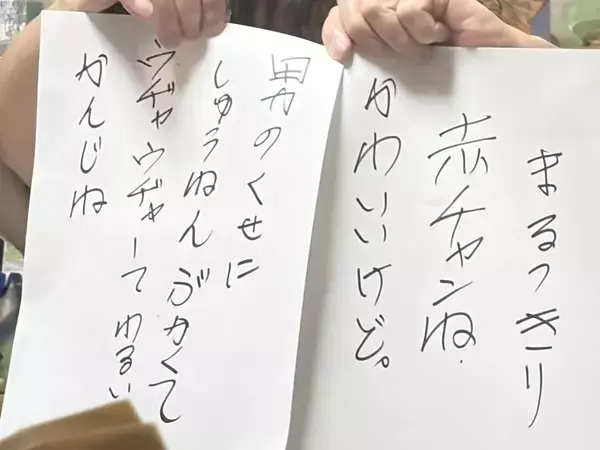 まるっきり
赤チャンね.
かわいいけど。
男のくせに
しゅうねんぶかくて
ウヂャウヂャーてわるい
かんじね